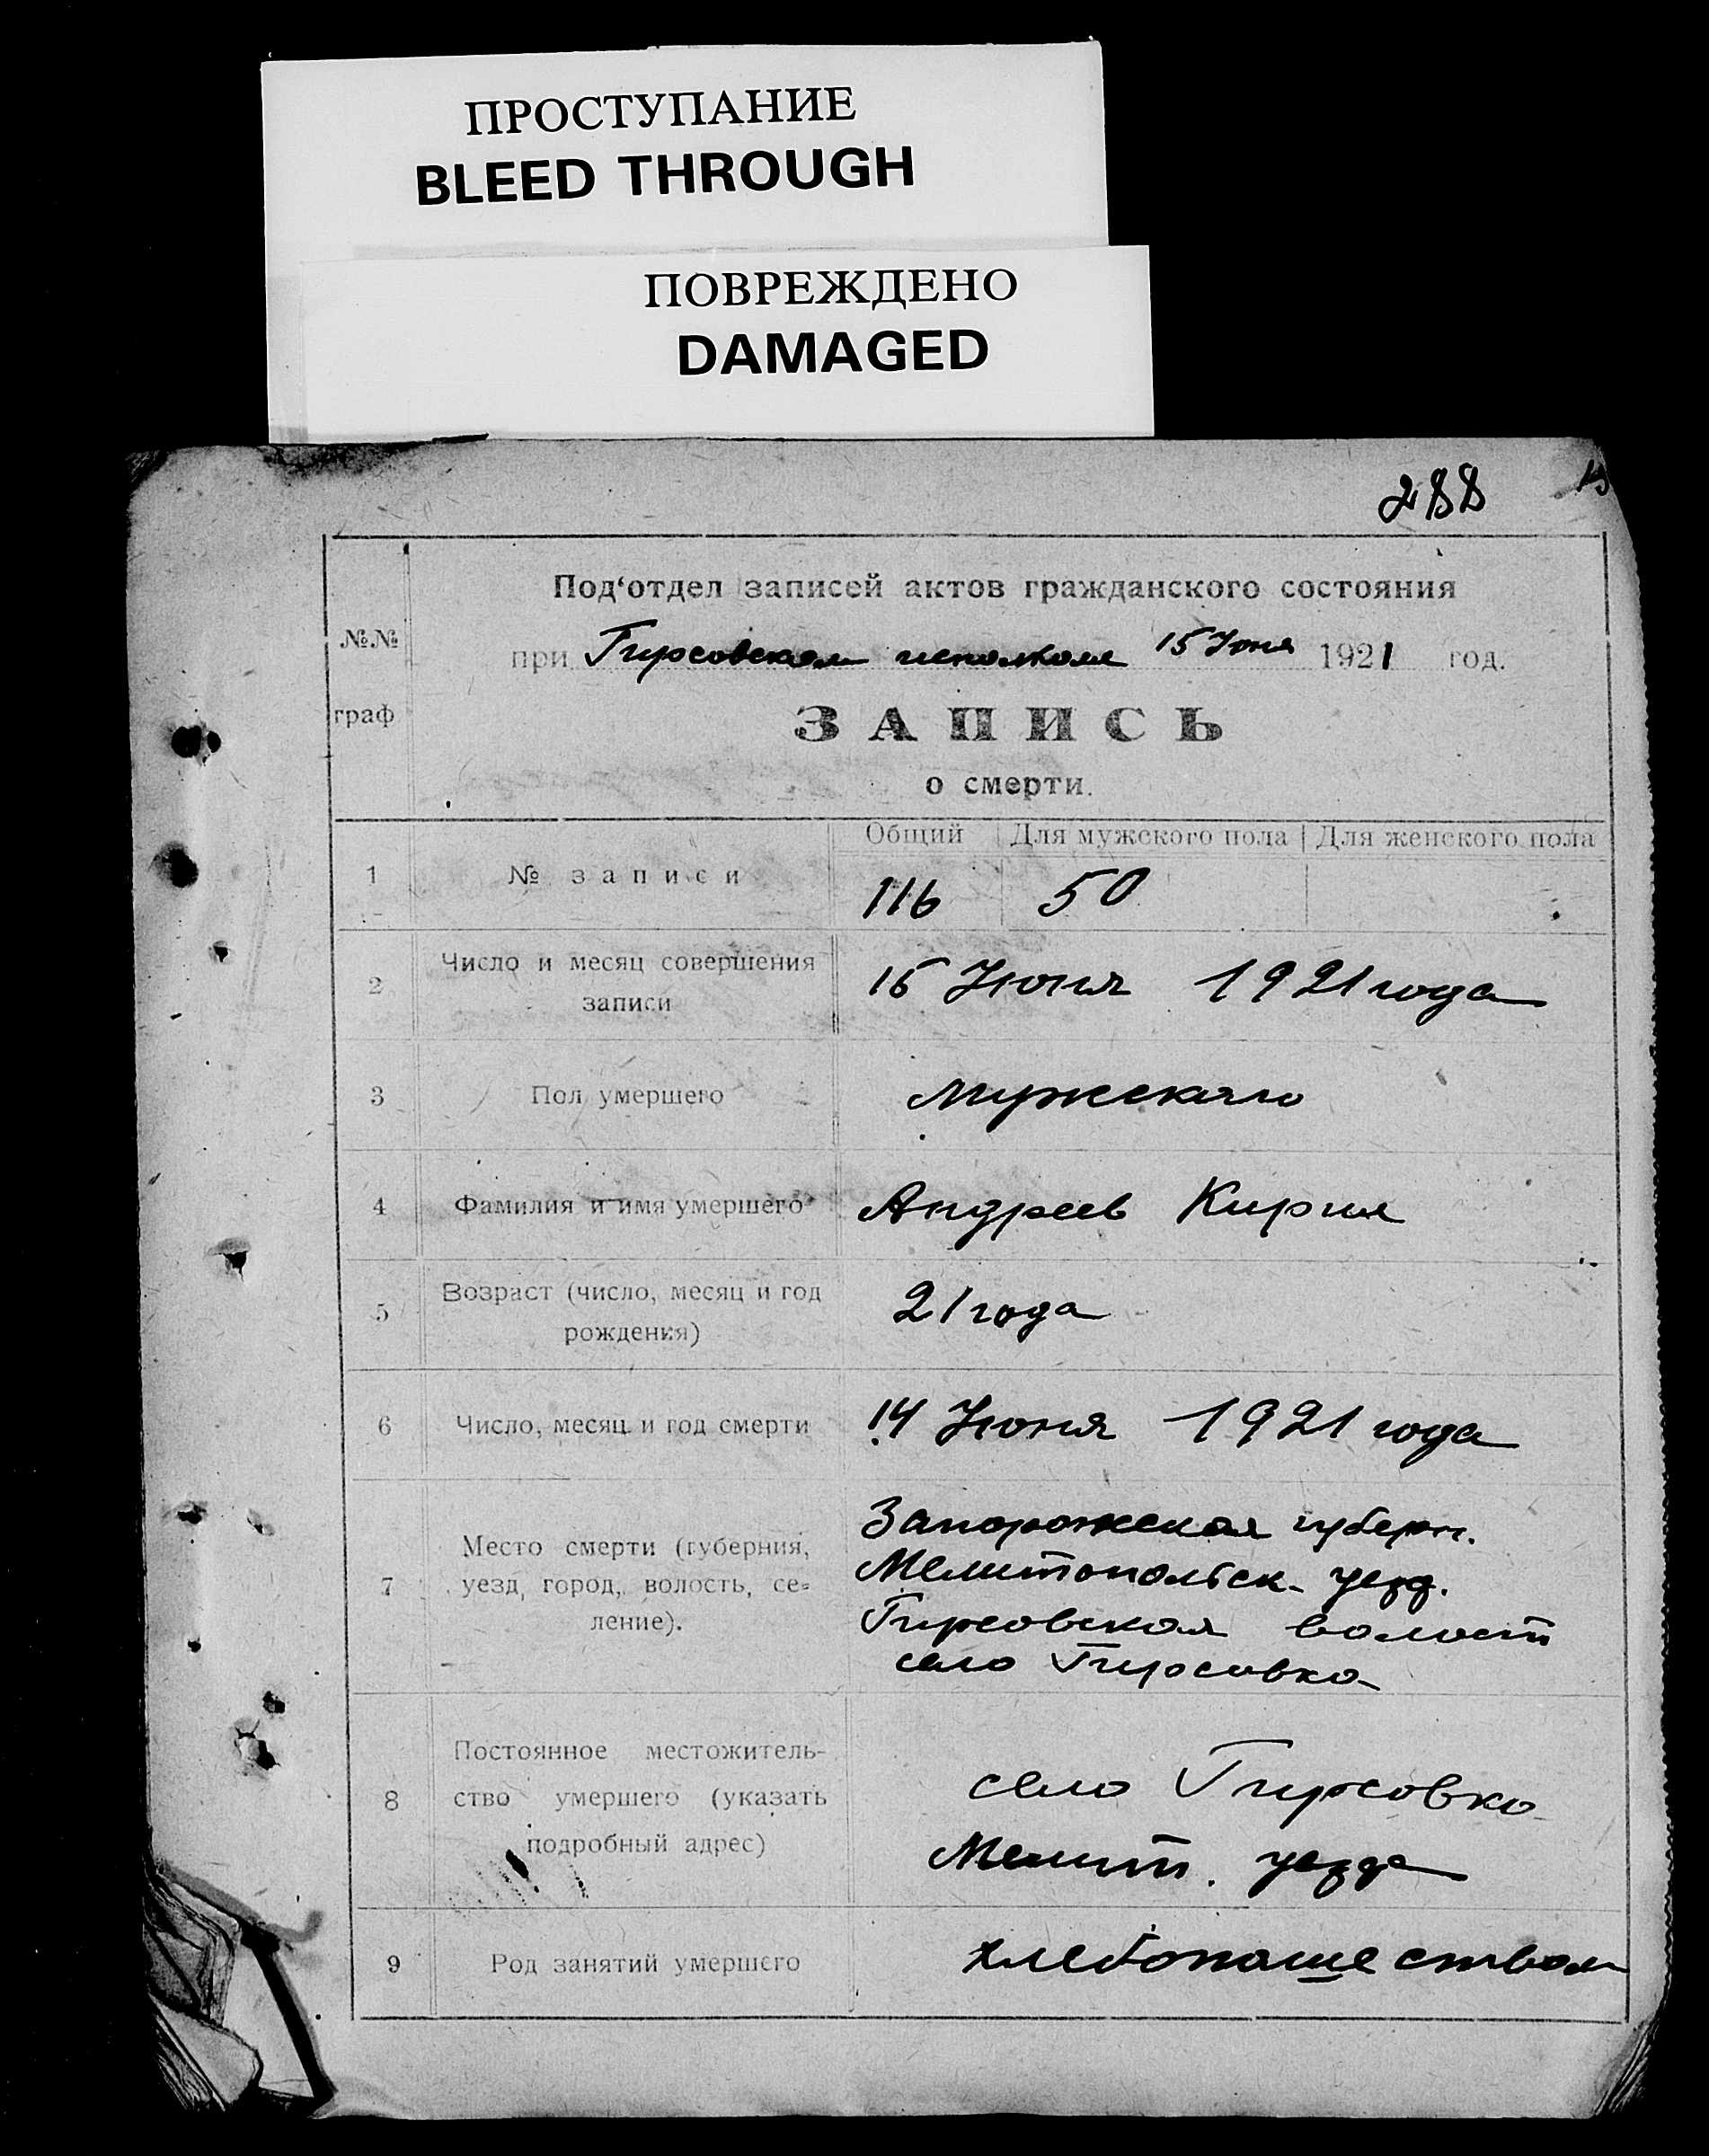 ПРОСТУПАНИЕ
BLEED THROUGH
ПОВРЕЖДЕНО
DAMAGED
288
№№ граф
Под‘отдел записей актов гражданского состояния
при Гирсовском исполкоме 15 Июня 1921 год.
ЗАПИСЬ
о смерти.
Общий Для мужского пола Для женского пола
1 № записи 116 50
2 Число и месяц совершения
записи
15 Июня 1921 года
3 Пол умершего мужского
4 Фамилия и имя умершего Андреев Кирил
5 Возраст (число, месяц и год
рождения)
21 года
6 Число, месяц и год смерти 14 Июня 1921 года
7 Место смерти (губерния,
уезд, город, волость, се=
ление).
Запорожская губерн.
Мелитопольск. уезд.
Гирсовская волост
село Гирсовка
8 Постоянное местожитель-
ство умершего (указать
подробный адрес)
село Гирсовка
Мелит. уезда
9 Род занятий умершего хлебопашеством